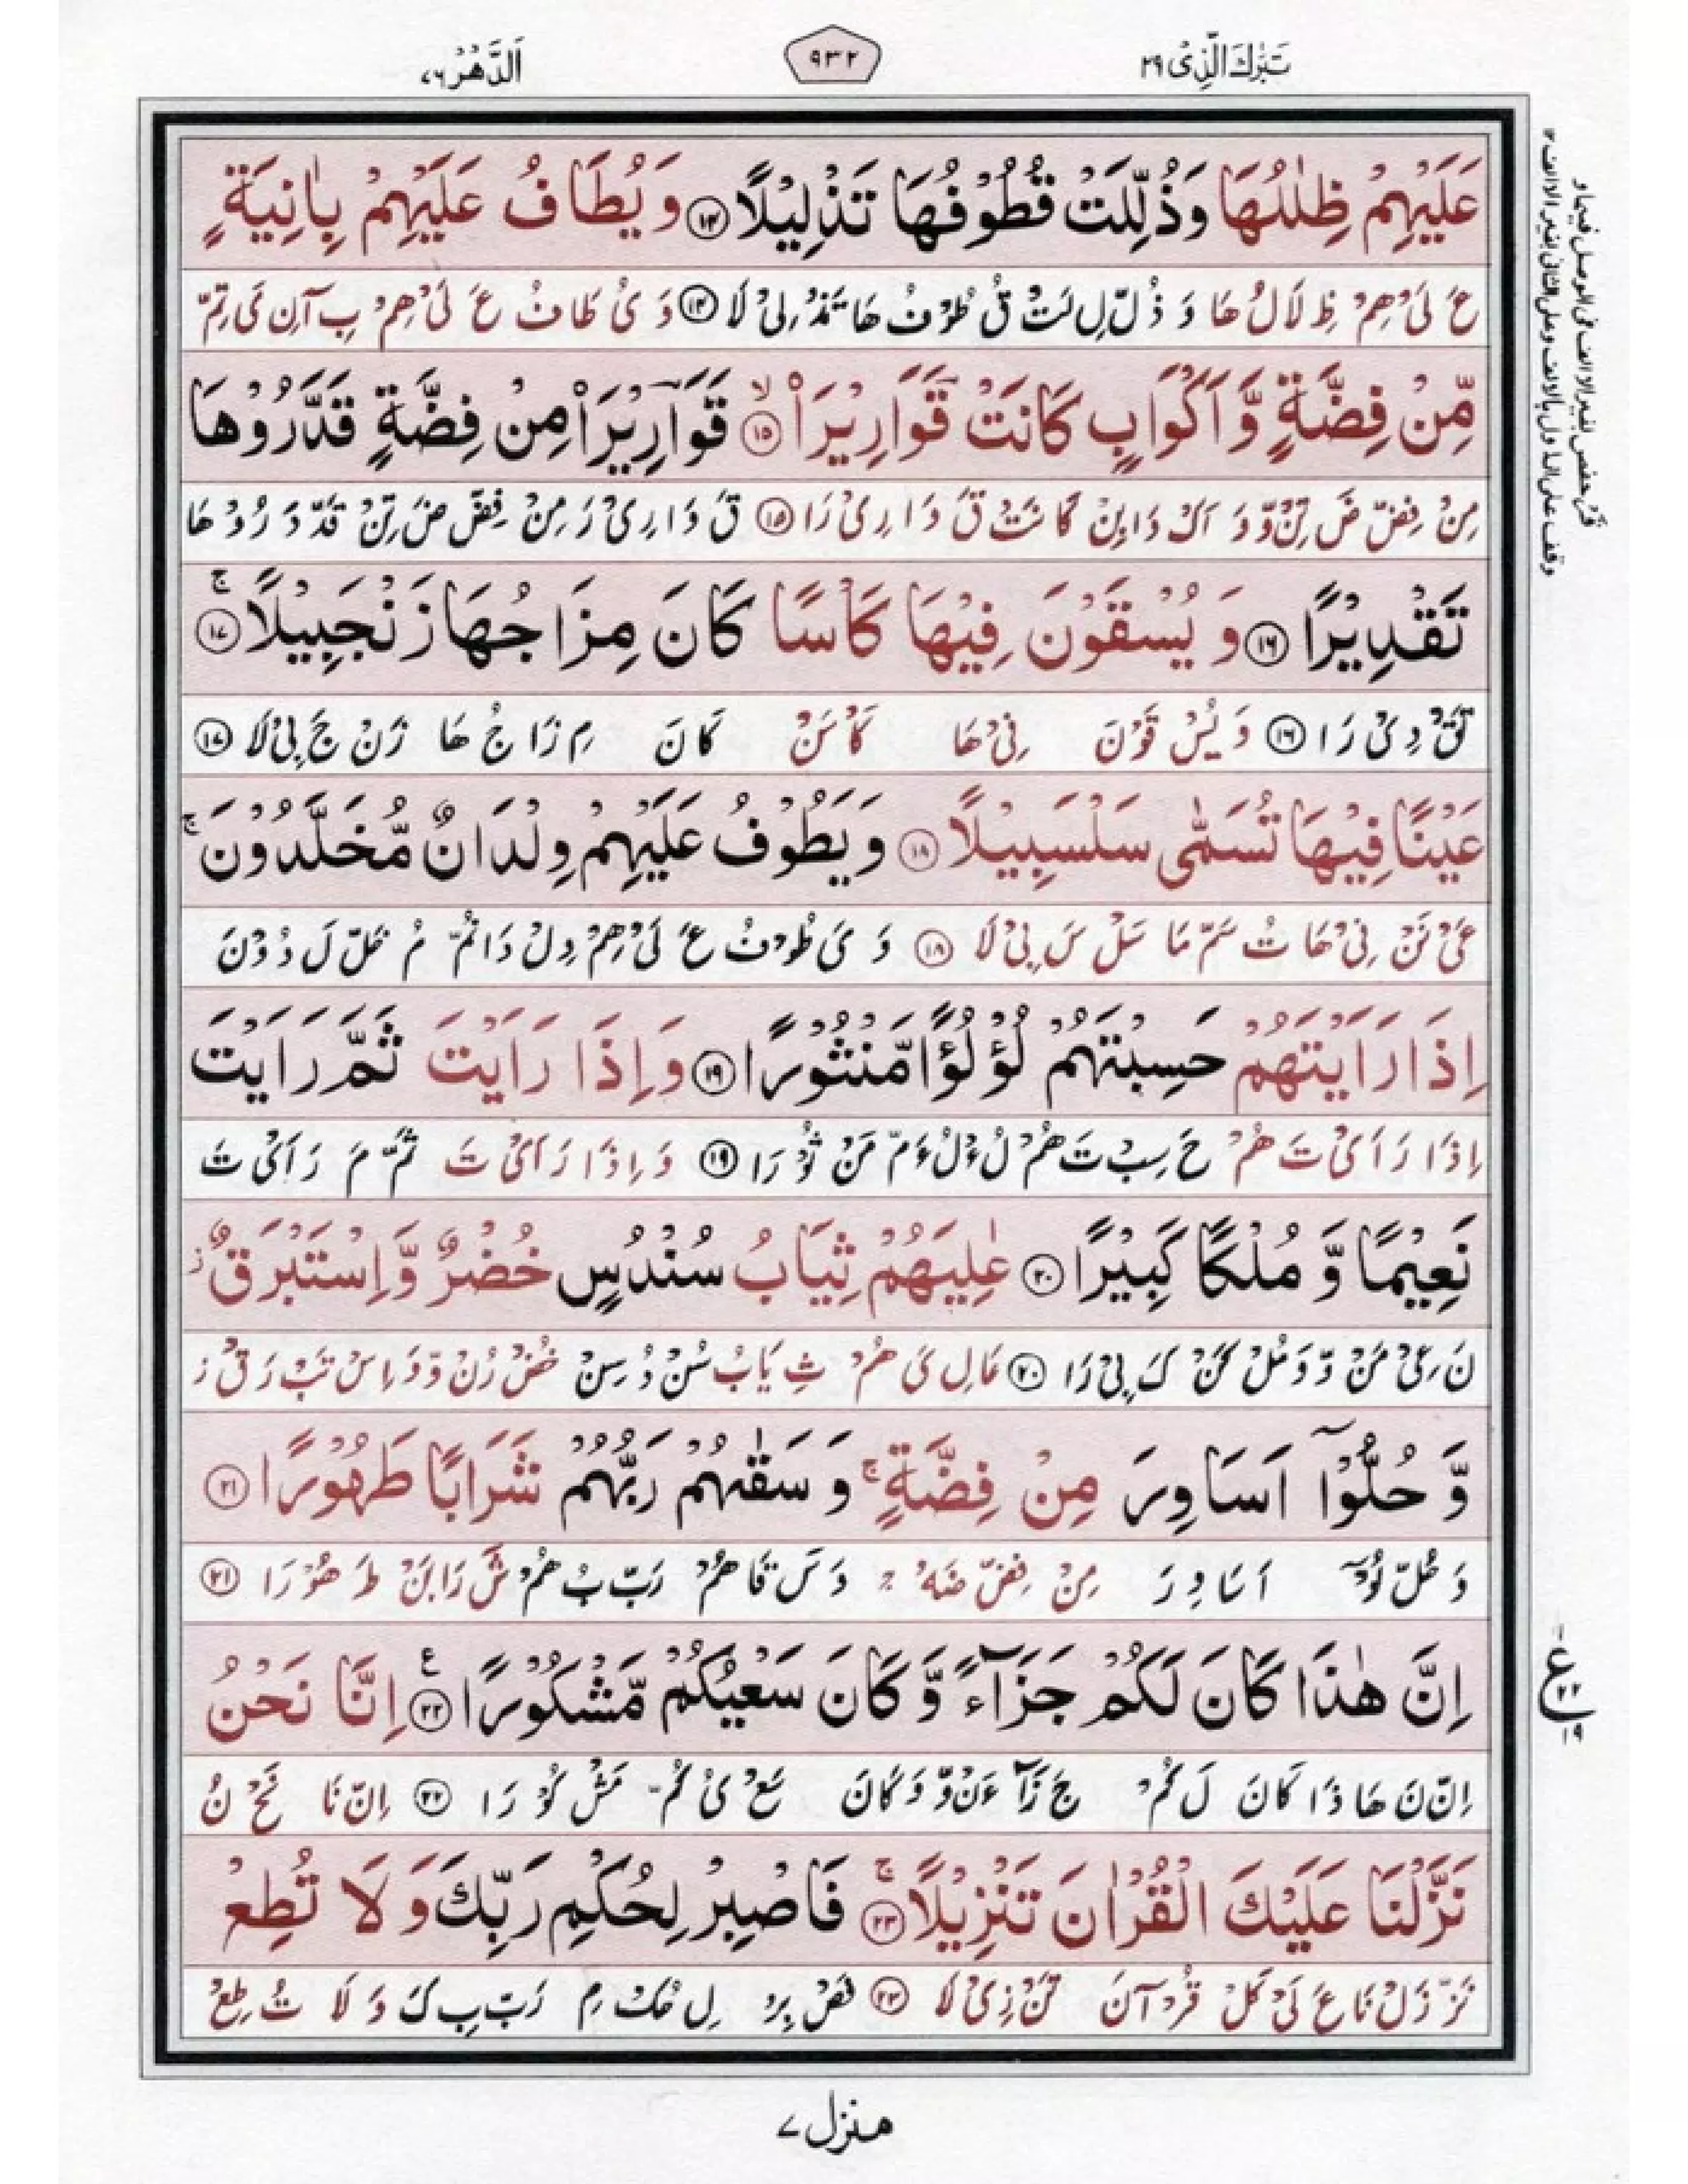 تَبٰرَكَ الَّذِیْ ۲۹
۹۳۲
اَلدَّهْرُ ۷۶
عَلَیْهِمْ ظِلٰلُهَا وَذُلِّلَتْ قُطُوْفُهَا تَذْلِیْلًا ۱۴ وَ یُطَافُ عَلَیْهِمْ بِاٰنِیَةٍ
عَ لَیْ هِمْ ظِ لَالُ هَا وَ ذُلّ لِ لَتْ قُ طُوْ فُ هَا تَذْ لِیْ لَا ۱۴ وَ یُ طَا فُ عَ لَیْ هِمْ بِ آنِ یَ تِمّ
مِّنْ فِضَّةٍ وَّ اَكْوَابٍ كَانَتْ قَوَارِیْرَا۠ ۱۵ قَوَآرِیْرَا۠ مِنْ فِضَّةٍ قَدَّرُوْهَا
مِنْ فِضّ ضَ تِنْ وّ وَ اَكْ وَا بِنْ كَا نَتْ قَ وَا رِیْ رَا ۱۵ قَ وَا رِیْ رَ مِنْ فِضّ ضَ تِنْ قَدّ دَ رُوْ هَا
تَقْدِیْرًا ۱۶ وَ یُسْقَوْنَ فِیْهَا كَاْسًا كَانَ مِزَاجُهَا زَنْجَبِیْلًا ۚ ۱۷
تَقْ دِیْ رَا ۱۶ وَ یُسْ قَوْ نَ فِیْ هَا كَاْ سَنْ كَا نَ مِ زَا جُ هَا زَنْ جَ بِیْ لَا ۱۷
عَیْنًا فِیْهَا تُسَمّٰی سَلْسَبِیْلًا ۱۸ وَ یَطُوْفُ عَلَیْهِمْ وِلْدَانٌ مُّخَلَّدُوْنَ ۚ
عَیْ نَنْ فِیْ هَا تُ سَمّ مَا سَلْ سَ بِیْ لَا ۱۸ وَ یَ طُوْ فُ عَ لَیْ هِمْ وِلْ دَا نُمّ مُ خَلّ لَ دُوْ نَ
اِذَا رَاَیْتَهُمْ حَسِبْتَهُمْ لُؤْلُؤًا مَّنْثُوْرًا ۱۹ وَ اِذَا رَاَیْتَ ثَمَّ رَاَیْتَ
اِذَا رَ اَیْ تَ هُمْ حَ سِبْ تَ هُمْ لُءْ لُ ءَمّ مَنْ ثُوْ رَا ۱۹ وَ اِذَا رَ اَیْ تَ ثَمّ مَ رَ اَیْ تَ
نَعِیْمًا وَّ مُلْكًا كَبِیْرًا ۲۰ عٰلِیَهُمْ ثِیَابُ سُنْدُسٍ خُضْرٌ وَّ اِسْتَبْرَقٌ ز
نَ عِیْ مَنْ وّ وَ مُلْ كَنْ كَ بِیْ رَا ۲۰ عَا لِ یَ هُمْ ثِ یَا بُ سُنْ دُ سِنْ خُضْ رُنْ وّ وَ اِسْ تَبْ رَ قُ ز
وَّ حُلُّوْۤا اَسَاوِرَ مِنْ فِضَّةٍ ۚ وَ سَقٰىهُمْ رَبُّهُمْ شَرَابًا طَهُوْرًا ۲۱
وَ حُلّ لُوْۤ اَ سَا وِ رَ مِنْ فِضّ ضَهْ وَ سَ قَا هُمْ رَبّ بُ هُمْ شَ رَا بَنْ طَ هُوْ رَا ۲۱
اِنَّ هٰذَا كَانَ لَكُمْ جَزَآءً وَّ كَانَ سَعْیُكُمْ مَّشْكُوْرًا ۲۲ ع اِنَّا نَحْنُ
اِنّ نَ هَا ذَا كَا نَ لَ كُمْ جَ زَآ ءَنْ وّ وَ كَا نَ سَعْ یُ كُمّ مَشْ كُوْ رَا ۲۲ اِنّ نَا نَحْ نُ
نَزَّلْنَا عَلَیْكَ الْقُرْاٰنَ تَنْزِیْلًا ۚ ۲۳ فَاصْبِرْ لِحُكْمِ رَبِّكَ وَ لَا تُطِعْ
نَزّ زَلْ نَا عَ لَیْ كَلْ قُرْ آ نَ تَنْ زِیْ لَا ۲۳ فَصْ بِرْ لِ حُكْ مِ رَبّ بِ كَ وَ لَا تُ طِعْ
منزل ۷